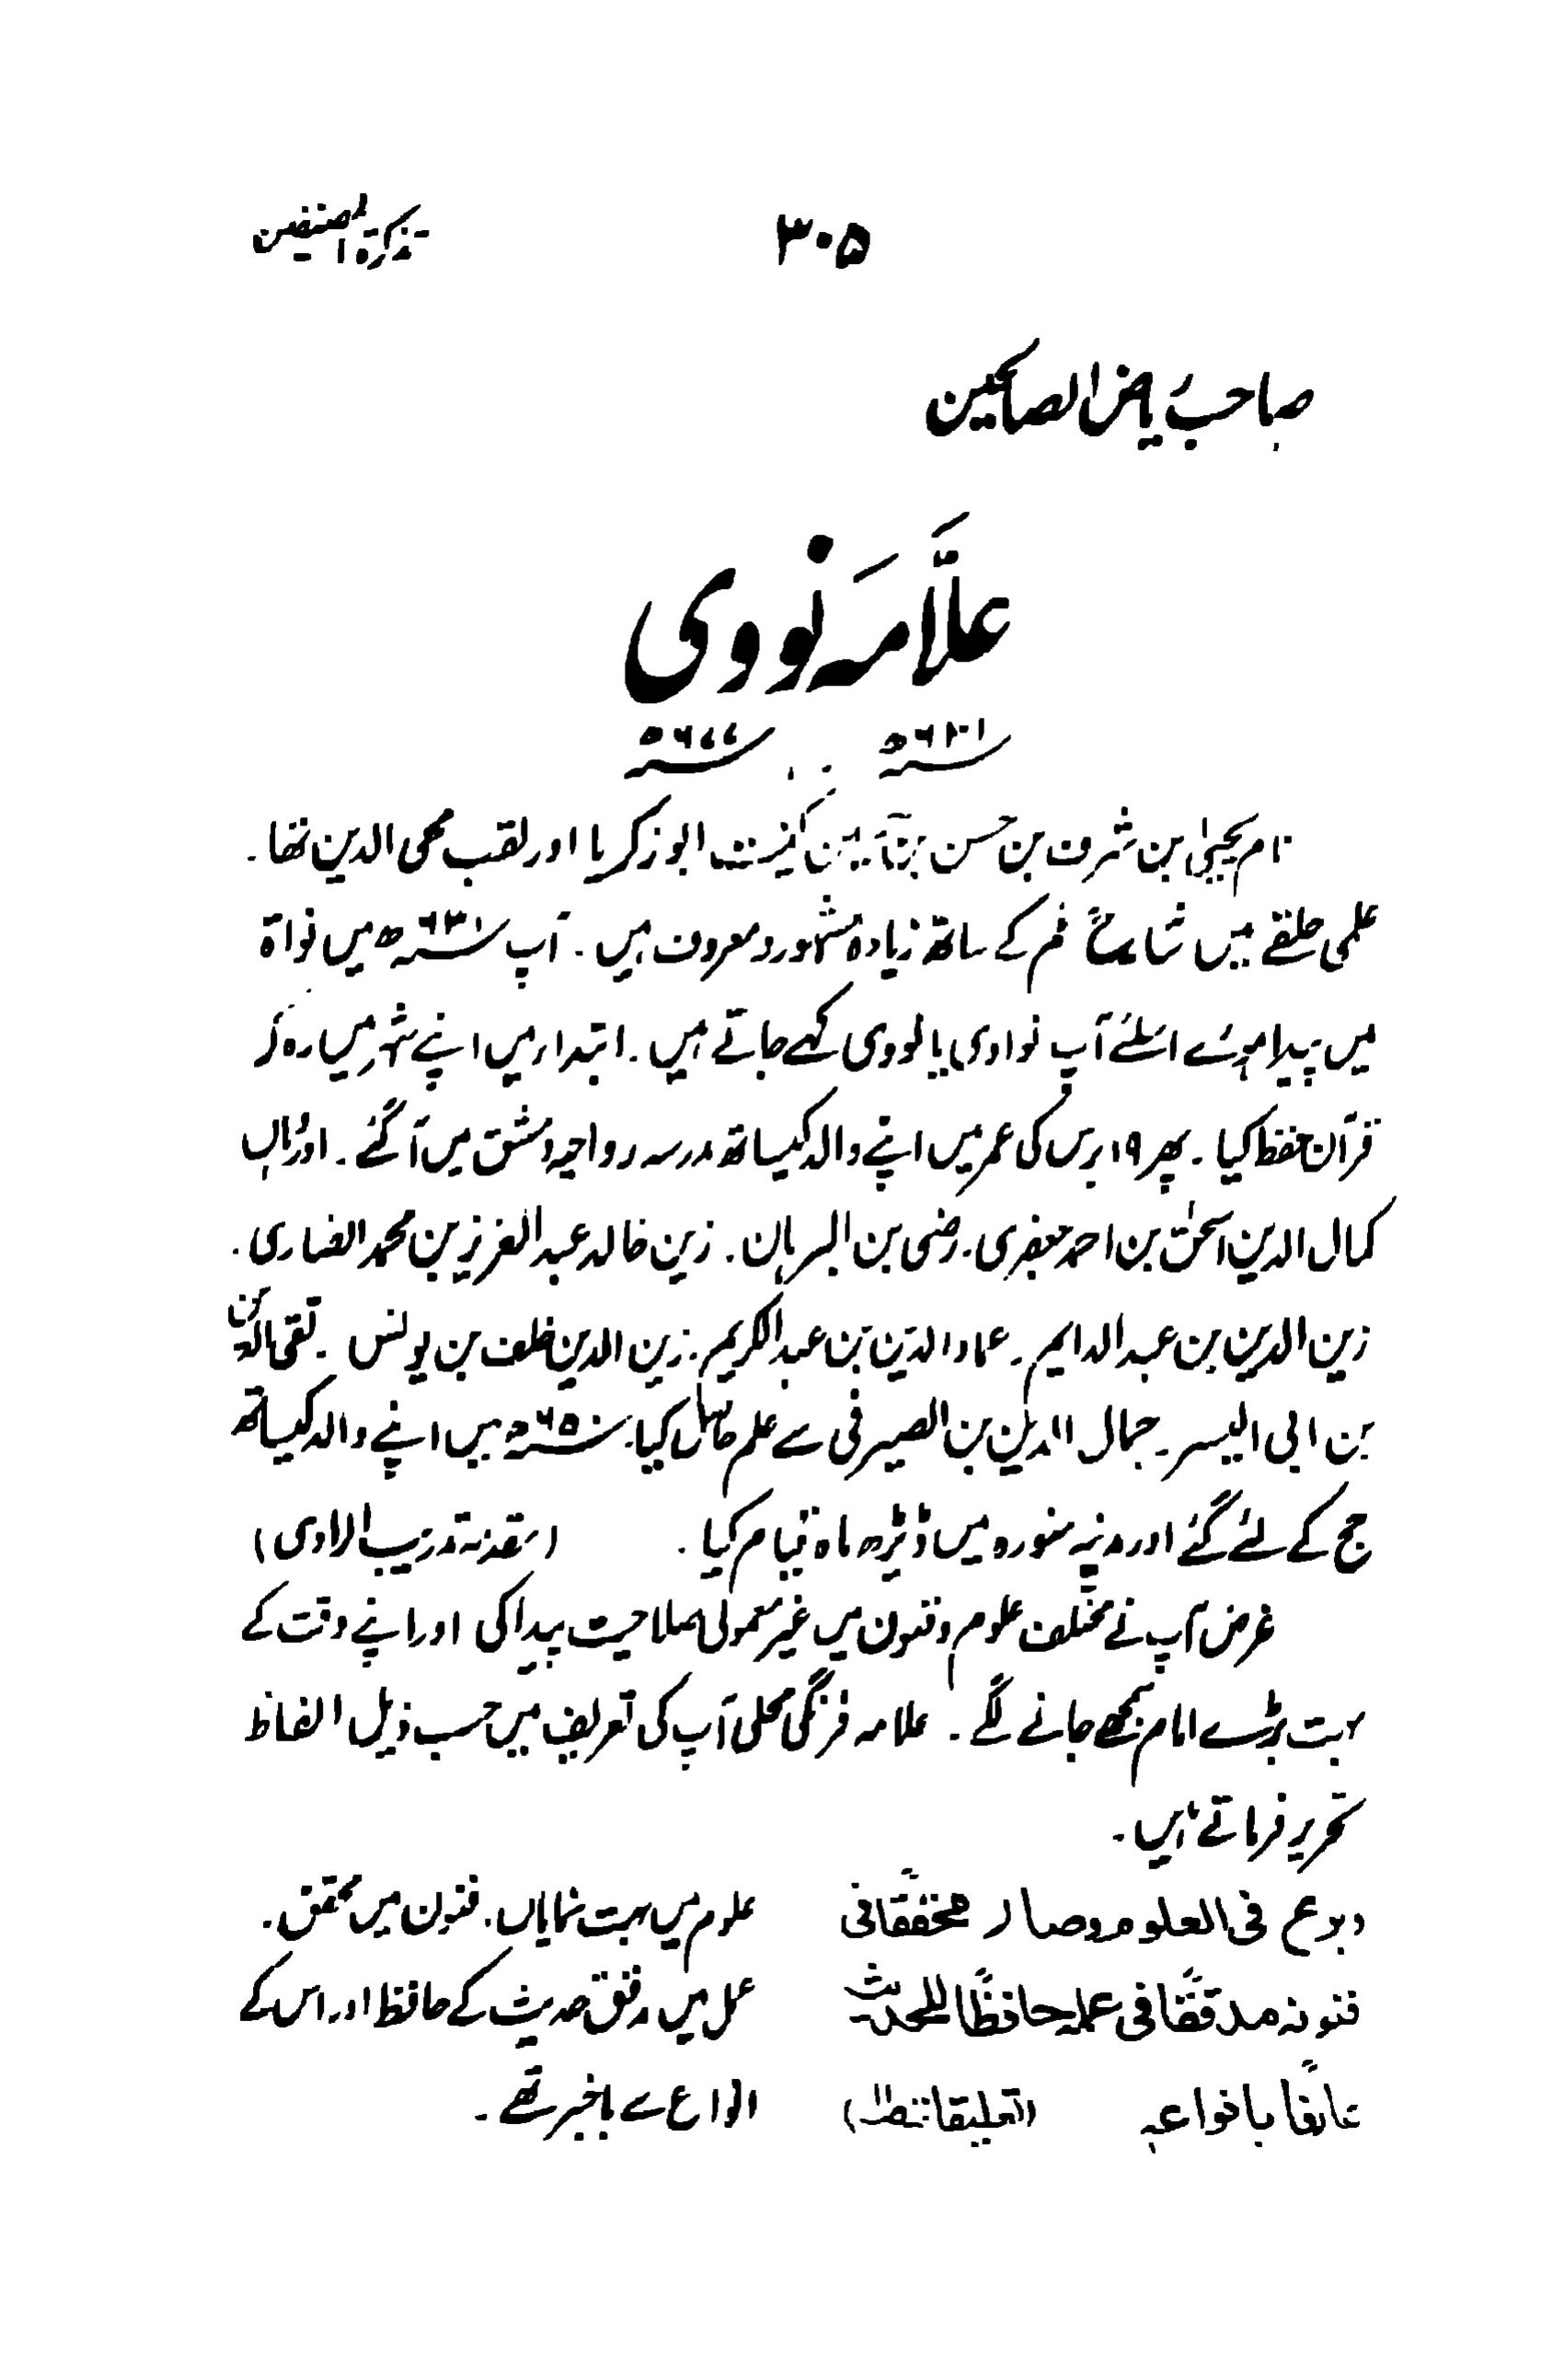 تذکرۃ المصنفین
۳۰۵
صاحب ریاض الصالحین
علَّامَہ نووی
۶۳۱ھ ۶۷۷ھ
نام یحییٰ بن شرف بن حسن کنیت ابو زکریا اور لقب محی الدین تھا۔
علمی حلقے میں شارح مسلم کے ساتھ زیادہ مشہور و معروف ہیں۔ آپ ۶۳۱ھ میں نواۃ
میں پیدا ہوئے اسلئے آپ نواوی یا نووی کہے جاتے ہیں۔ ابتداء میں اپنے شہر میں رہ کر
قرآن حفظ کیا۔ پھر ۱۹ برس کی عمر میں اپنے والد کیساتھ مدرسہ رواحیہ دمشق میں آ گئے۔ اور وہاں
کمال الدین اسحٰق بن احمد جعفری۔ رضی بن البرہان۔ زین خالد عبد العزیز بن محمد انصاری۔
زین الدین بن عبد الدایم۔ عماد الدین بن عبد الکریم۔ زین الدین خلف بن یونس۔ تقی الدین
بن ابی الیسر۔ جمال الدین بن الصیرفی سے علم حاصل کیا۔ ۶۵۰ھ میں اپنے والد کیساتھ
حج کے لئے گئے اور مدینہ منورہ میں ڈیڑھ ماہ قیام کیا۔ (مقدمہ تدریب الراوی)
غرض آپ نے مختلف علوم و فنون میں غیر معمولی صلاحیت پیدا کی اور اپنے وقت کے
بہت بڑے امام سمجھے جانے لگے۔ علامہ فرنگی محلی آپ کی تعریف میں حسب ذیل الفاظ
تحریر فرماتے ہیں۔
وبرع فی العلوم وصار محققًا فی
فنونہ مدققًا فی عملہ حافظًا للحدیث
عارفًا بانواعہ (التعلیقات)
علوم میں بہت نمایاں۔ فنون میں محقق۔
عمل میں مدقق حدیث کے حافظ اور اس کے
انواع سے باخبر تھے۔